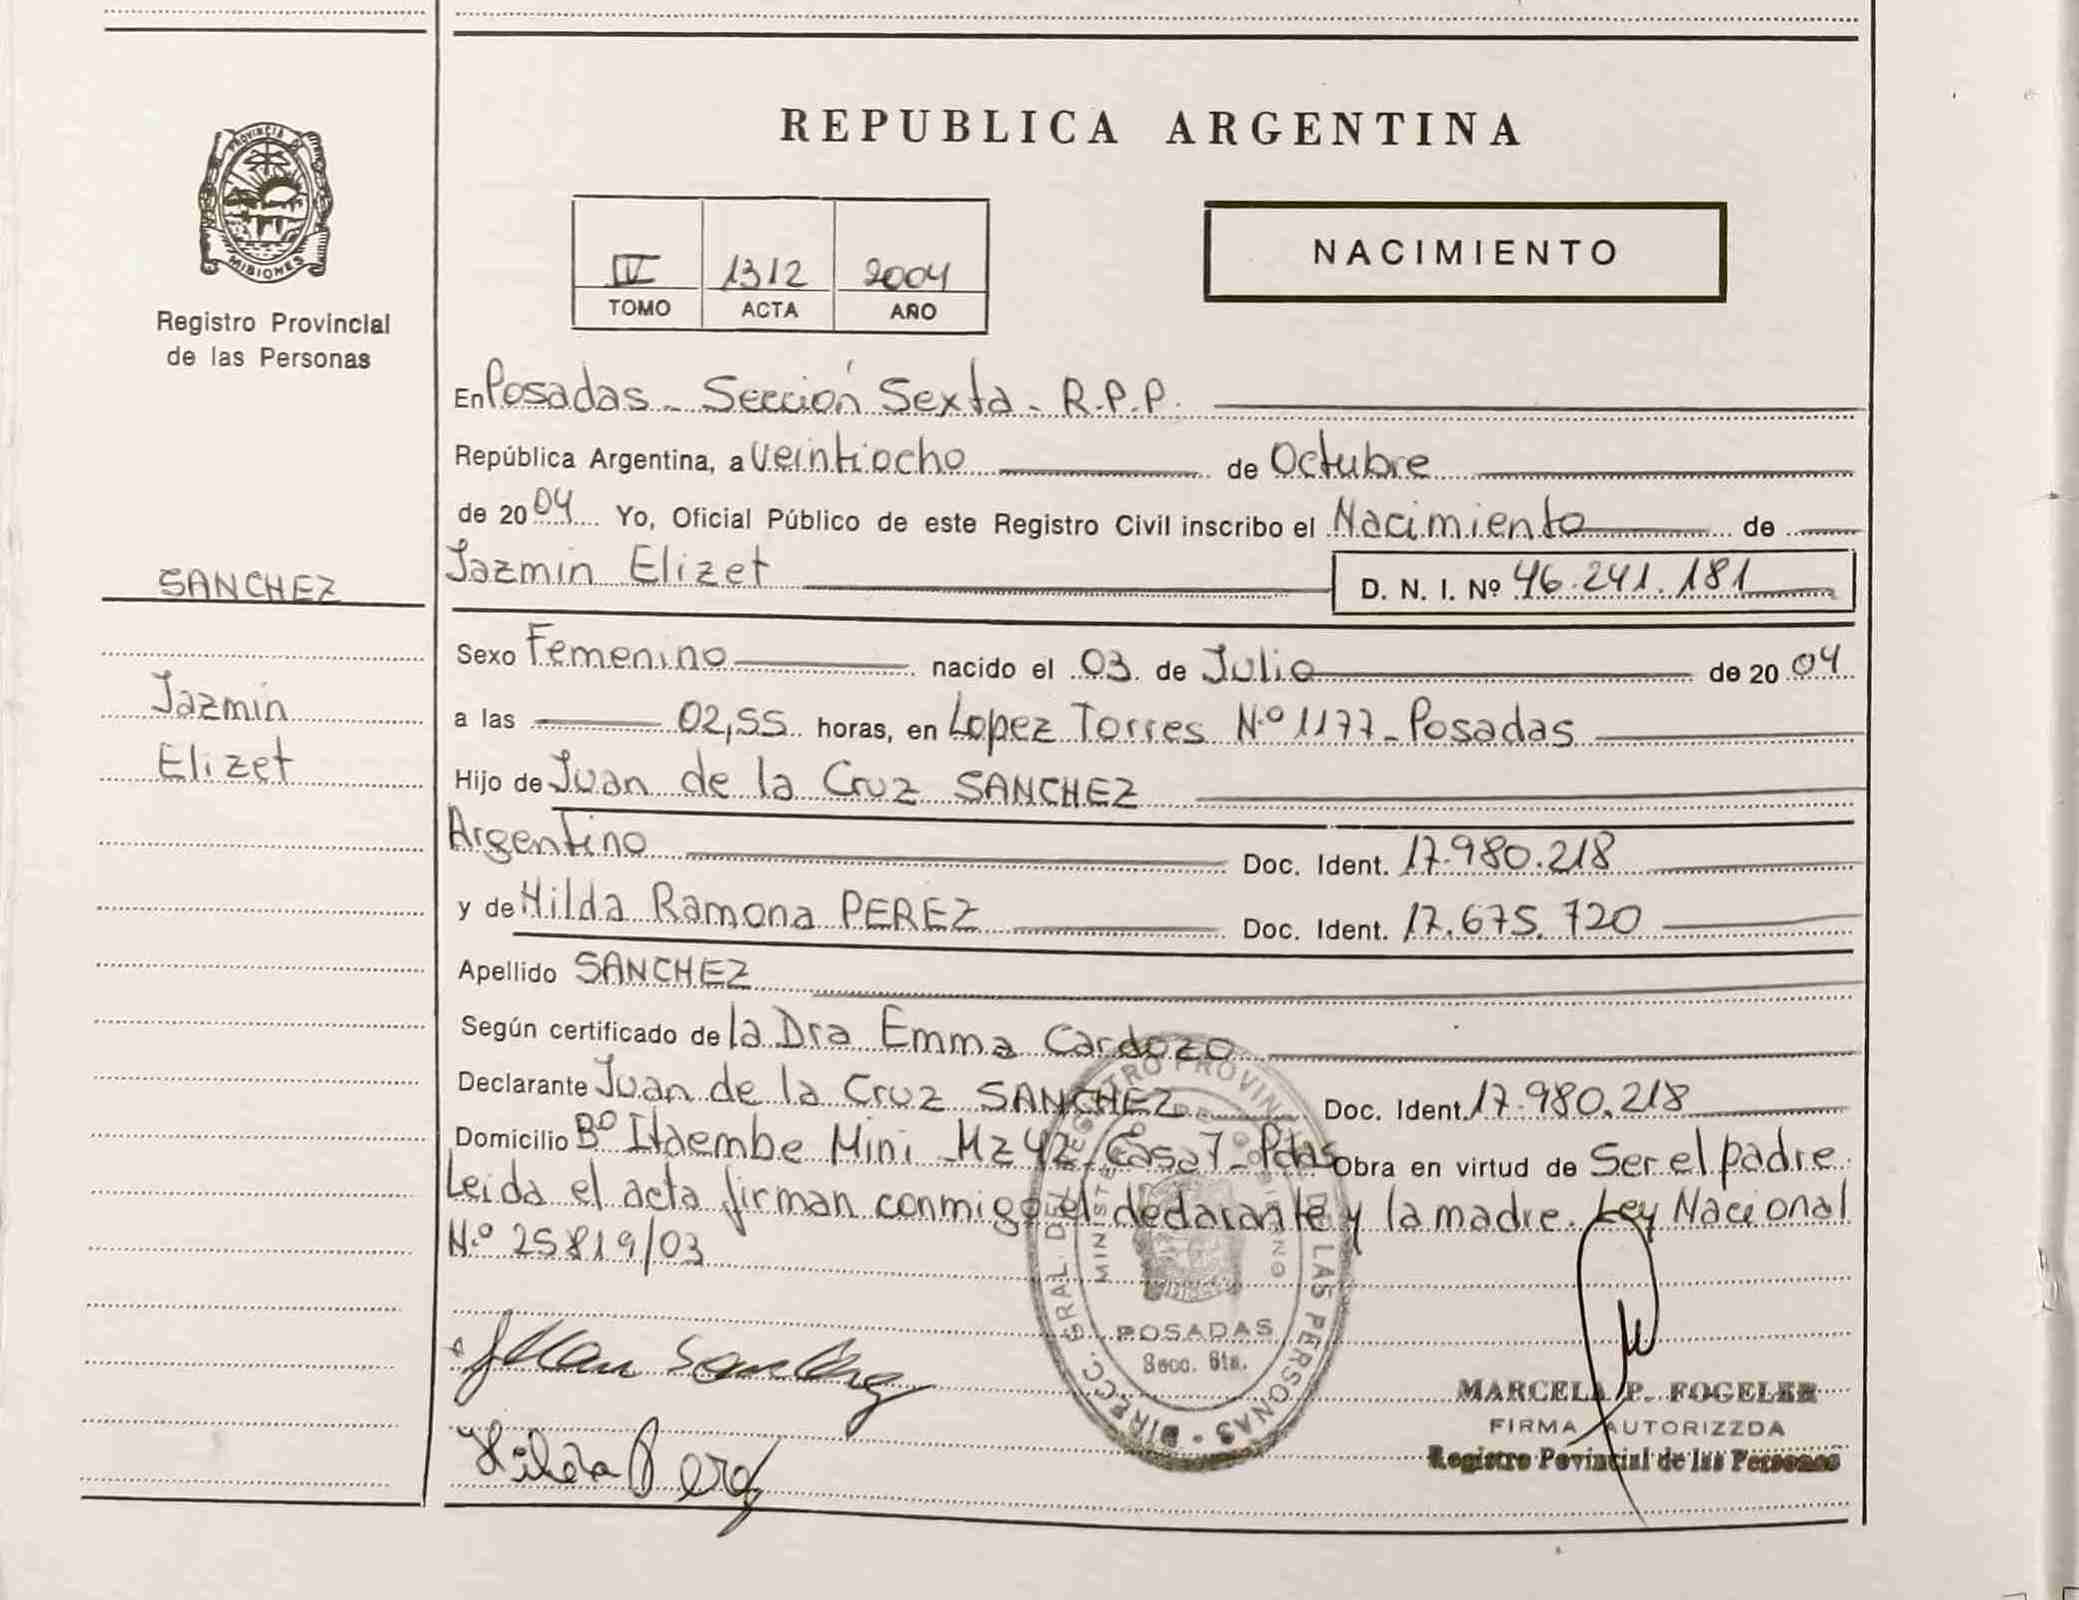 REPUBLICA ARGENTINA
PROVINCIA DE
MISIONES
Registro Provincial
de las Personas
IV 1312 2004
TOMO ACTA AÑO
NACIMIENTO
En Posadas - Sección Sexta - R.P.P.
República Argentina, a veintiocho de Octubre
de 2004 Yo, Oficial Público de este Registro Civil inscribo el Nacimiento de
Jazmin Elizet D. N. I. Nº 46.241.181
SANCHEZ
Jazmin
Elizet
Sexo Femenino nacido el 03 de Julio de 2004
a las 02,55 horas, en Lopez Torres N.º 1177 - Posadas
Hijo de Juan de la Cruz SANCHEZ
Argentino Doc. Ident. 17.980.218
y de Hilda Ramona PEREZ Doc. Ident. 17.675.720
Apellido SANCHEZ
Según certificado de la Dra Emma Cardozo
Declarante Juan de la Cruz SANCHEZ Doc. Ident. 17.980.218
Domicilio Bº Itaembe Mini - Mz 42 - Casa 7 - Pdas Obra en virtud de Ser el padre.
Leida el acta firman conmigo el declarante y la madre. Ley Nacional
N.º 25819/03
Juan Sanchez
Hilda Perez
DIRECC. GRAL. DEL REGISTRO PROVINCIAL DE LAS PERSONAS
MINISTERIO DE GOBIERNO
POSADAS
Secc. 6ta.
MARCELA P. FOGELER
FIRMA AUTORIZZDA
Registro Povincial de las Personas